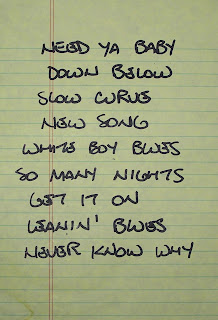 NEED YA BABY
DOWN BELOW
SLOW CURVE
NEW SONG
WHITE BOY BLUES
SO MANY NIGHTS
GET IT ON
LEANIN' BLUES
NEVER KNOW WHY